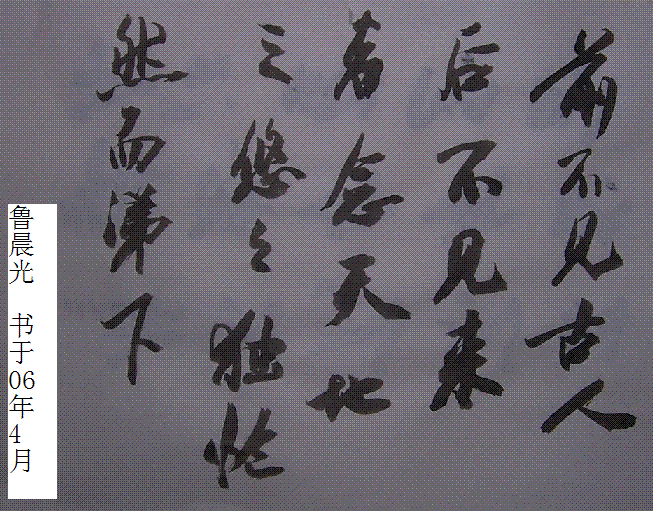 前不见古人
后不见来
者念天地
之悠之独怆
然而涕下
鲁晨光 书于06年4月